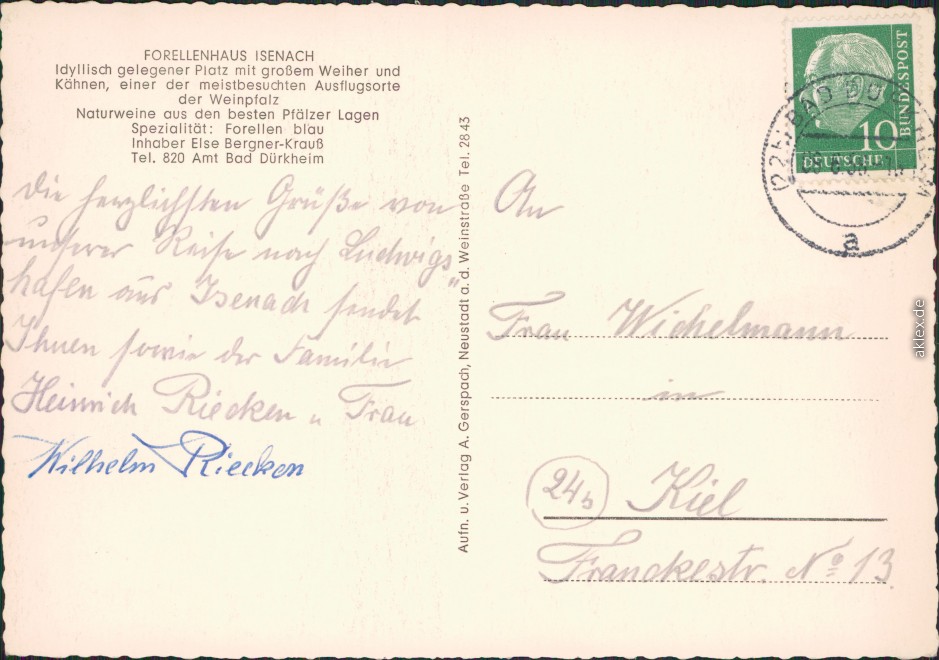 FORELLENHAUS ISENACH
Idyllisch gelegener Platz mit großem Weiher und
Kähnen, einer der meistbesuchten Ausflugsorte
der Weinpfalz
Naturweine aus den besten Pfälzer Lagen
Spezialität: Forellen blau
Inhaber Else Bergner-Krauß
Tel. 820 Amt Bad Dürkheim
Die herzlichsten Grüße von
unserer Reise nach Ludwigs
hafen aus Isenach sendet
Ihnen sowie der Familie
Heinrich Riecken u Frau
Wilhelm Riecken
Aufn. u. Verlag A. Gerspach, Neustadt a. d. Weinstraße Tel. 2843
An
Frau Wichelmann
in
24b Kiel
Franckestr. No 13
10
DEUTSCHE
BUNDESPOST
BAD DÜRKHEIM
a
aklex.de